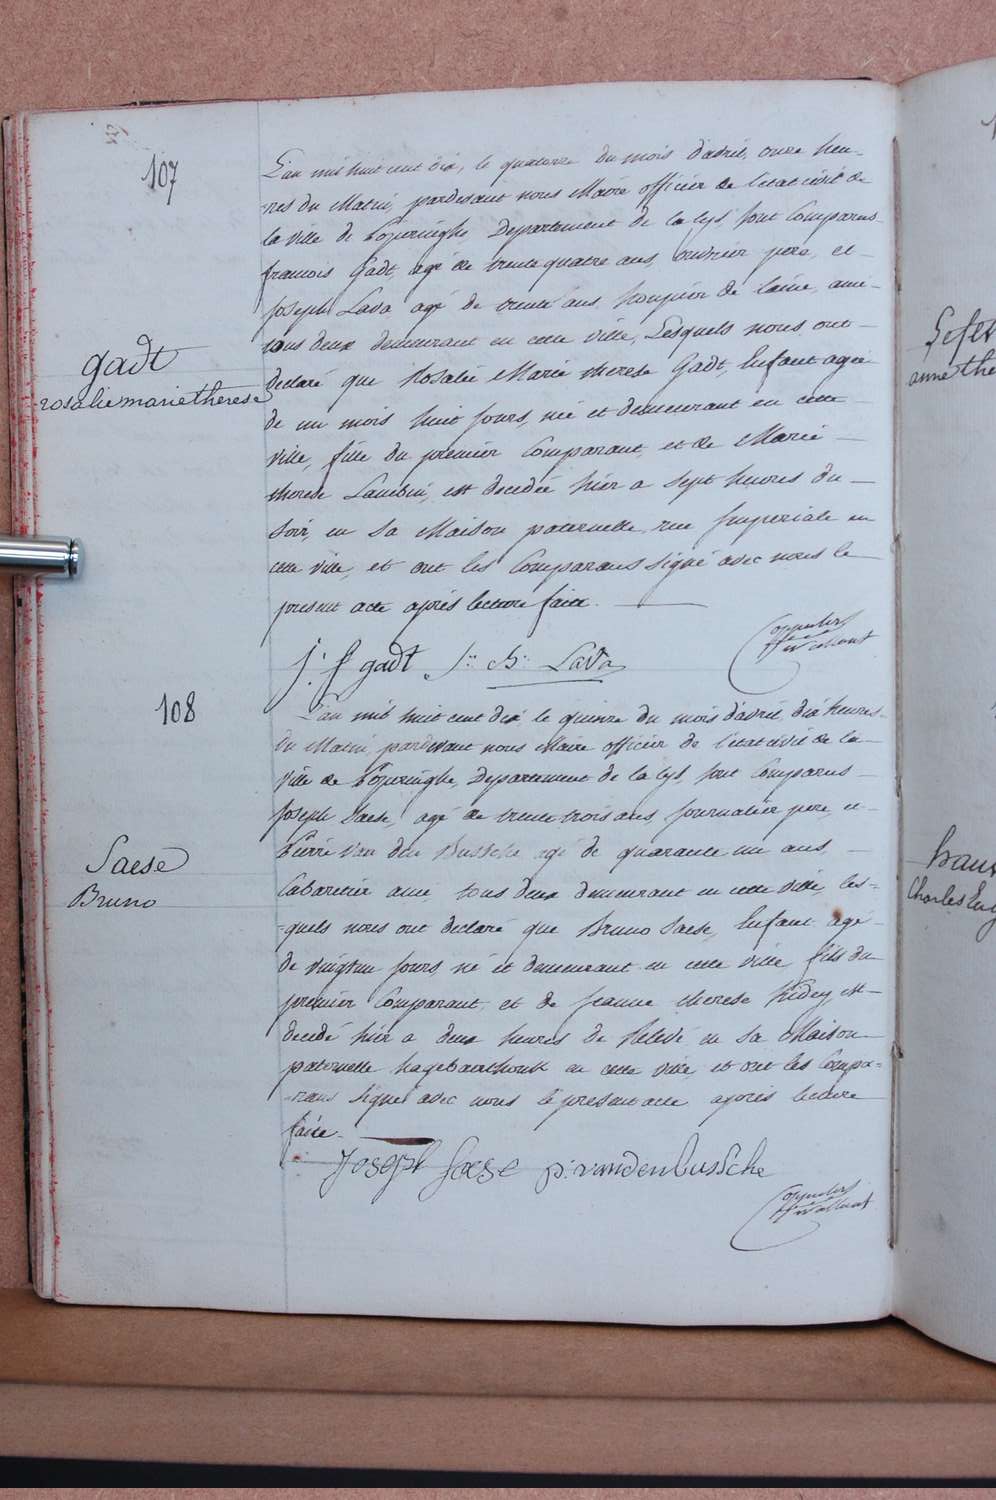 107
L'an mil huit cent dix, le quatorze du mois d'avril, onze heu-
-res du Matin, pardevant nous Maire officier de l'etat civil de
la ville de Poperinghe Departement de la Lys, sont Comparus
francois Gadt, agé de trente quatre ans, ouvrier pere, et -
Joseph Lava agé de trente ans houpier de laine, ami -
tous deux demeurant en cette ville, Lesquels nous ont -
declaré que Rosalie Marie therese Gadt, Enfant agée
de un mois huit Jours, née et demeurant en cette -
ville, fille du premier Comparant, et de Marie -
therese Lambin, est decedée hier a sept heures du -
Soir, en Sa Maison paternelle rue Imperiale en
cette ville, et ont les Comparans signé avec nous le
present acte après lecture faite.
gadt
rosalie marie therese
j. f gadt J. B. Lava
108
L'an mil huit cent dix le quinze du mois d'avril, dix heures
du Matin, pardevant nous Maire officier de l'etat civil de la -
ville de Poperinghe, Departement de la Lys, sont Comparus -
Joseph Saese, agé de trente trois ans Journalier pere, et -
Pierre Van den Bussche agé de quarante un ans, -
Cabaretier ami, tous deux demeurant en cette ville, les-
-quels nous ont declaré que Bruno Saese, Enfant agé -
de vingt un Jours, né et demeurant en cette ville, fils du
premier Comparant, et de Jeanne therese est -
decedé hier a deux heures de Relevé, en Sa Maison
paternelle en cette ville et ont les Compa-
-rans signé avec nous le present acte après lecture
faite.
Saese
Bruno
Joseph Saese p: vandenbussche
anne the
Charles Eug